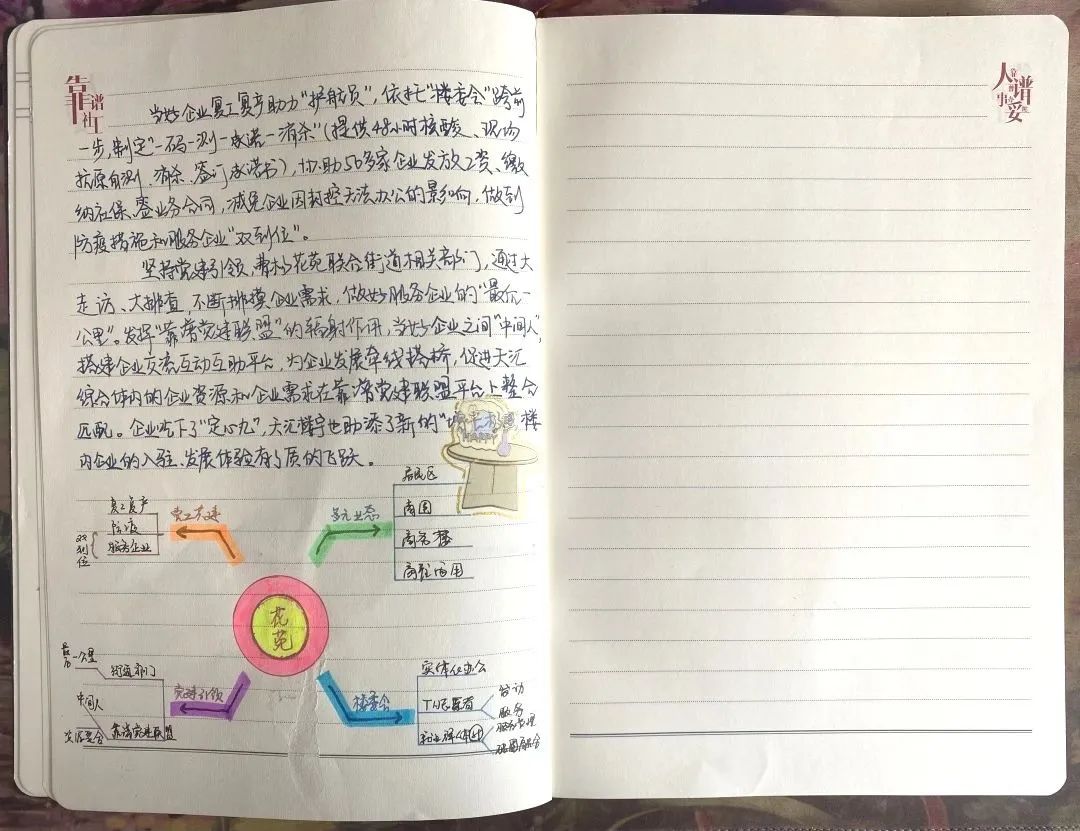 靠谱社工
当好企业复工复产助力“护航员”，依托“楼委会”跨前
一步，制定“一码一测一承诺一消杀”（提供48小时核酸、现场
抗原自测、消杀、签订承诺书），协助50多家企业发放工资、缴
纳社保、签业务合同，减免企业因封控无法办公的影响，做到
防疫措施和服务企业“双到位”。
坚持党建引领，曹杨花苑联合街道相关部门，通过大
走访、大排查，不断排摸企业需求，做好服务企业的“最后一
公里”。发挥“靠谱党建联盟”的辐射作用，当好企业之间“中间人”，
搭建企业交流互动互助平台，为企业发展牵线搭桥，促进天汇
综合体内的企业资源和企业需求在靠谱党建联盟平台上整合
匹配。企业吃下了“定心丸”，天汇楼宇也助添了新的 楼
内企业的入驻、发展体验有了质的飞跃。
HAPPY
复工复产
防疫
服务企业
双到位
多元业态
居民区
商圈
商务楼
商住两用
花苑
最后一公里
街道部门
中间人
党建引领
靠谱党建联盟
楼委会
实体化办公
服务
人靠谱
事办妥